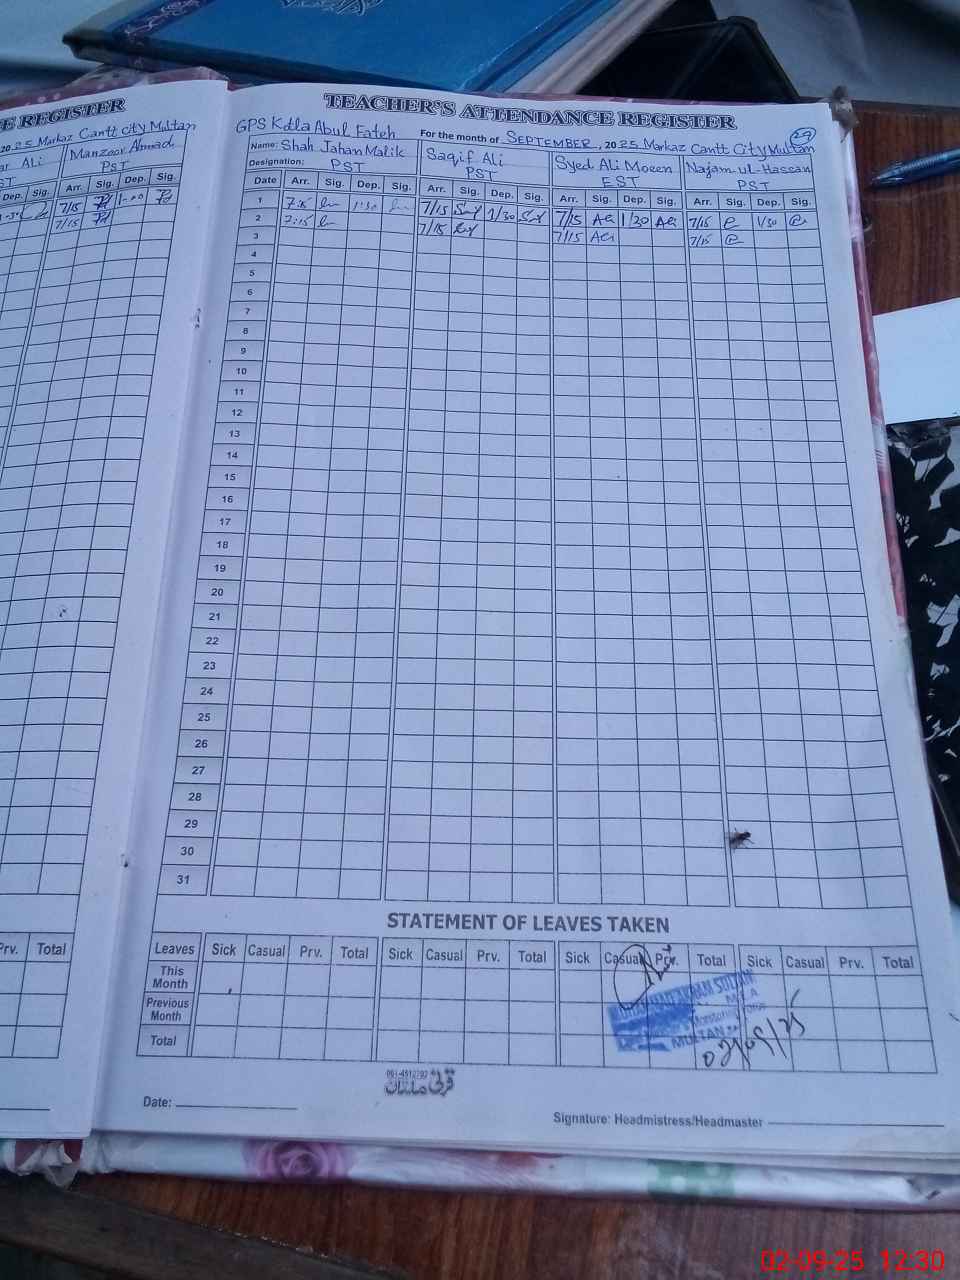 E REGISTER
TEACHER'S ATTENDANCE REGISTER
2025 Markaz Cantt City Multan
GPS Kotla Abul Fateh For the month of SEPTEMBER, 2025 Markaz Cantt City Multan
29
Ali Manzoor Ahmad
PST
Name: Shah Jahan Malik Saqif Ali Syed Ali Moeen Najam ul-Hassan
Designation: PST PST EST PST
Dep. Sig. Arr. Sig. Dep. Sig.
Date Arr. Sig. Dep. Sig. Arr. Sig. Dep. Sig. Arr. Sig. Dep. Sig. Arr. Sig. Dep. Sig.
7/15 1-00
7/15
1 7:15 1:30 7/15 1/30 7/15 Ali 1/30 Ali 7/15 1/30
2 7:15 7/15 7/15 Ali 7/15
3
4
5
6
7
8
9
10
11
12
13
14
15
16
17
18
19
20
21
22
23
24
25
26
27
28
29
30
31
STATEMENT OF LEAVES TAKEN
Prv. Total
Leaves Sick Casual Prv. Total Sick Casual Prv. Total Sick Casual Prv. Total Sick Casual Prv. Total
This Month
Previous Month
Total
MULTAN
02/09/25
061-4512792
قریشی ملتان
Date:
Signature: Headmistress/Headmaster
02-09-25 12:30